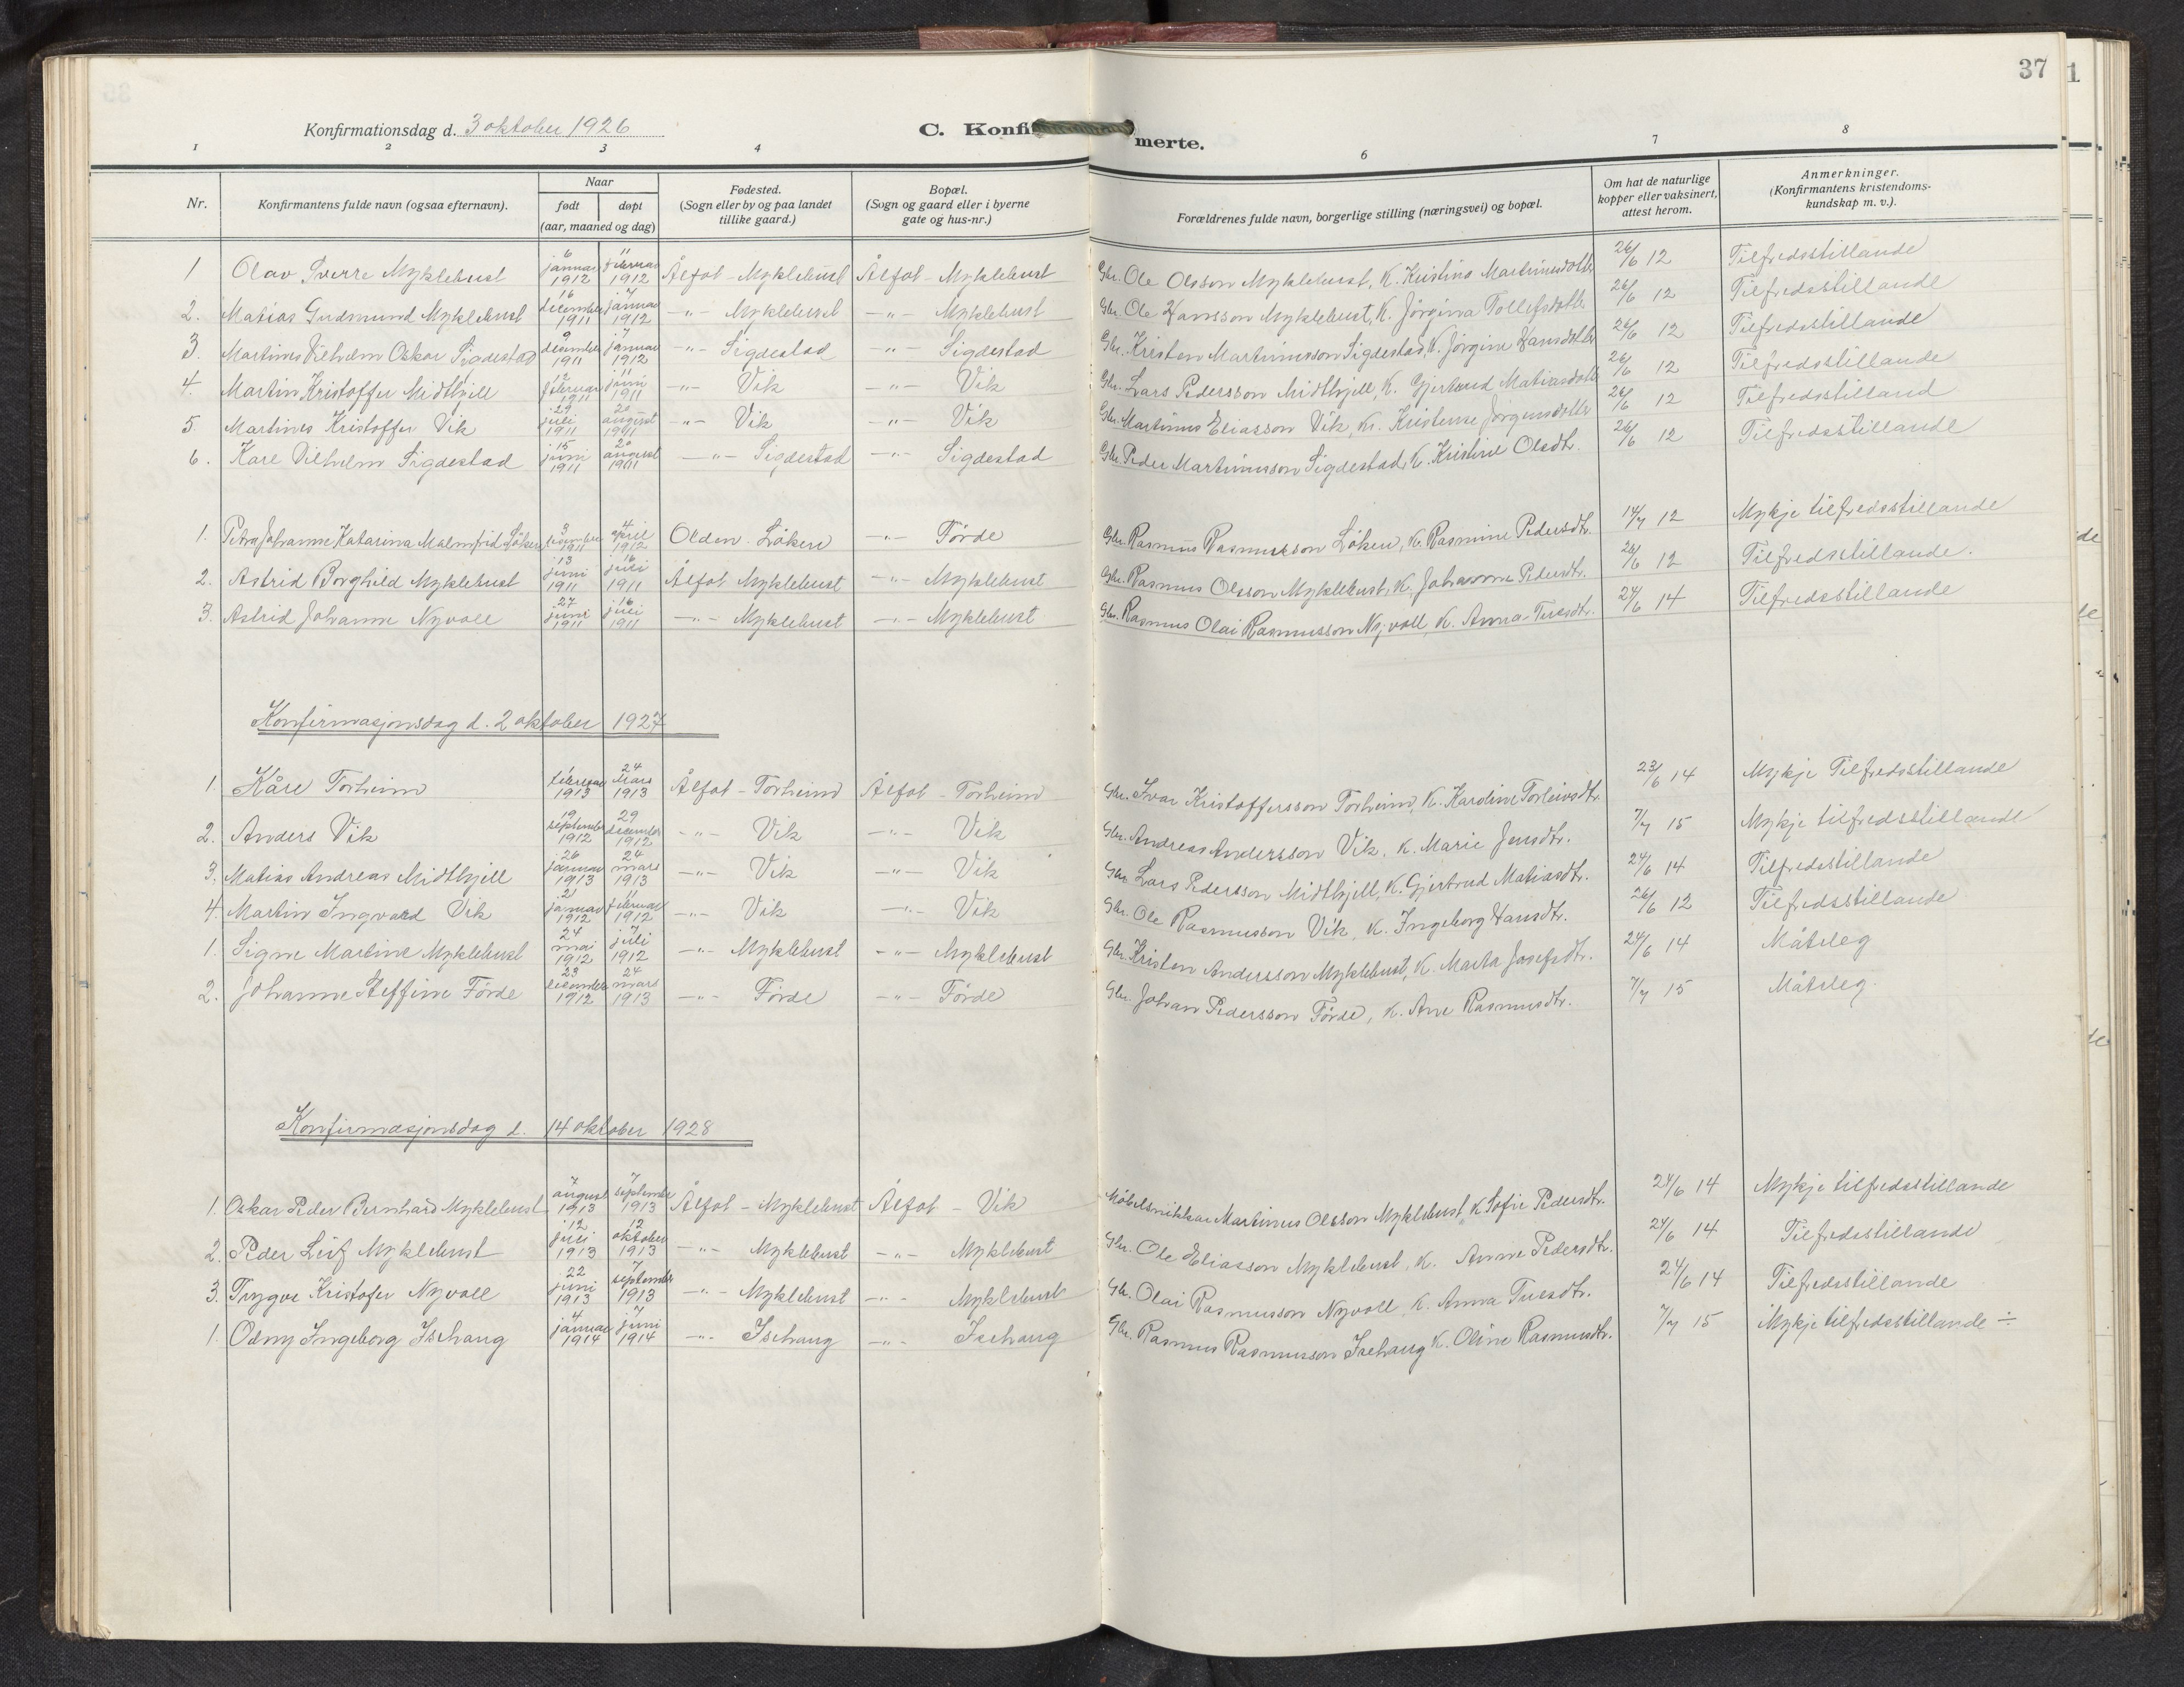 37
1
Konfirmationsdag d. 3 oktober 1926
C. Konfi
merte.
1 2 3 4 6 7 8
Nr.
Konfirmantens fulde navn (ogsaa efternavn).
Naar
født døpt
(aar, maaned og dag)
Fødested.
(Sogn eller by og paa landet
tillike gaard.)
Bopæl.
(Sogn og gaard eller i byerne
gate og hus-nr.)
Forældrenes fulde navn, borgerlige stilling (næringsvei) og bopæl.
Om hat de naturlige
kopper eller vaksinert,
attest herom.
Anmerkninger.
(Konfirmantens kristendoms-
kundskap m. v.).
1 Olav Sverre Myklebust 6 januar 1912 11 februar 1912 Ålfot - Myklebust Ålfot - Myklebust Gbr. Ole Olsson Myklebust, K. Kristina Martinusdotter 26/6 12 Tilfredsstillande
2. Matias Gudmund Myklebust 16 december 1911 7 januar 1912 -"- Myklebust -"- Myklebust Gbr. Ole Hansson Myklebust, K. Jörgina Tollefsdotter 26/6 12 Tilfredsstillande
3. Martinus Vilhelm Oskar Sigdestad 9 desember 1911 7 januar 1912 -"- Sigdestad -"- Sigdestad Gbr. Kristen Martinusson Sigdestad, K. Jörgine Hansdotter 26/6 12 Tilfredsstillande
4. Martin Kristoffer Midthjell 12 februar 1911 11 juni 1911 -"- Vik -"- Vik Gbr. Lars Pedersson Midthjell, K. Gjertrud Matiasdotter 26/6 12 Tilfredsstillande
5. Martinus Kristoffer Vik 29 juli 1911 20 august 1911 -"- Vik -"- Vik Gbr. Martinus Eliasson Vik, K. Kristense Jörgensdotter 26/6 12 Tilfredsstilland
6. Kare Vilhelm Sigdestad 15 juni 1911 20 august 1911 -"- Sigdestad -"- Sigdestad Gbr. Peder Martinusson Sigdestad, K. Kristine Olsdtr. 26/6 12 Tilfredsstillande
1. Petra Johanne Katarina Malmfrid Löken 3 1911 4 april 1912 Olden - Löken -"- Förde Gbr. Rasmus Rasmusson Löken, K. Rasmine Pedersdtr. 14/7 12 Mykje tilfredsstillande
2. Astrid Borghild Myklebust 13 juni 1911 16 juli 1911 Ålfot Myklebust -"- Myklebust Gbr. Rasmus Olsson Myklebust, K. Johanne Pedersdtr. 26/6 12 Tilfredsstillande.
3. Astrid Johanne Nyvoll 27 juni 1911 16 juli 1911 -"- Myklebust -"- Myklebust Gbr. Rasmus Olai Rasmusson Nyvoll, K. Anna Turesdtr. 24/6 14 Tilfredsstillande
Konfirmasjonsdag d. 2 oktober 1927
1. Kåre Torheim 1 februar 1913 24 mars 1913 Ålfot - Torheim Ålfot - Torheim Gbr. Ivar Kristoffersson Torheim, K. Karoline Torleivsdtr. 23/6 14 Mykje Tilfredsstillande
2. Anders Vik 19 september 1912 29 december 1912 -"- Vik -"- Vik Gbr. Andreas Andersson Vik, K. Marie Jensdtr. 7/7 15 Mykje tilfredsstillande
3. Matias Andreas Midthjell 26 januar 1913 24 mars 1913 -"- Vik -"- Vik Gbr. Lars Pedersson Midthjell, K. Gjertrud Matiasdtr. 24/6 14 Tilfredsstillande
4. Martin Ingvard Vik 21 januar 1912 11 februar 1912 -"- Vik -"- Vik Gbr. Ole Rasmusson Vik, K. Ingeborg Hansdtr. 26/6 12 Tilfredsstillande
1. Signe Martine Myklebust 24 mai 1912 7 juli 1912 -"- Myklebust -"- Myklebust Gbr. Kristen Andersson Myklebust, K. Marta Josefsdtr. 24/6 14 Måteleg
2. Johanne Steffine Förde 23 desember 1912 24 mars 1913 -"- Förde -"- Förde Gbr. Johan Pedersson Förde, K. Ane Rasmusdtr. 7/7 15 Måteleg.
Konfirmasjonsdag d. 14 oktober 1928
1. Oskar Peder Bernhard Myklebust 7 august 1913 7 september 1913 Ålfot - Myklebust Ålfot - Vik Möbelsnikkar Martinus Olsson Myklebust K. Sofie Pedersdtr. 24/6 14 Mykje tilfredsstillande
2. Peder Leif Myklebust 12 juli 1913 12 oktober 1913 -"- Myklebust -"- Myklebust Gbr. Ole Eliasson Myklebust, K. Anne Pedersdtr. 24/6 14 Tilfredsstillande
3. Trygve Kristofer Nyvoll 22 juni 1913 7 september 1913 -"- Myklebust -"- Myklebust Gbr. Olai Rasmusson Nyvoll, K. Anna Turesdtr. 24/6 14 Tilfredsstillande
1. Odny Ingeborg Isehaug 4 januar 1914 7 juni 1914 -"- Isehaug -"- Isehaug Gbr. Rasmus Rasmusson Isehaug K. Oline Rasmusdtr. 7/7 15 Mykje tilfredsstillande ÷